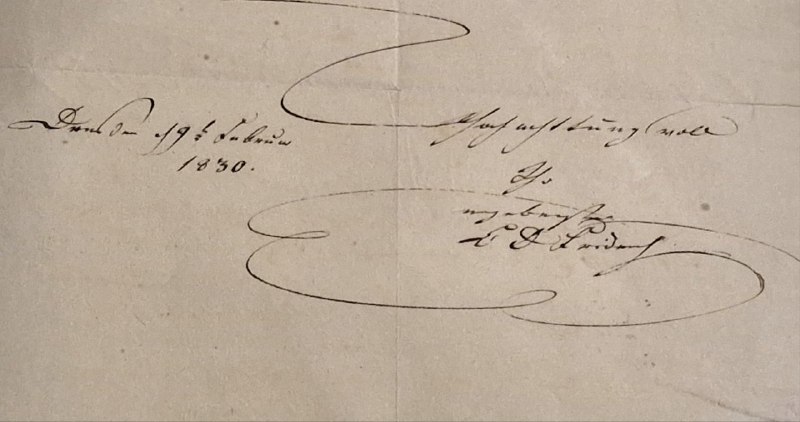 Dresden d 19t Februar
1830.
Hochachtungsvoll
Ihr
ergebenster
C D Fridrich